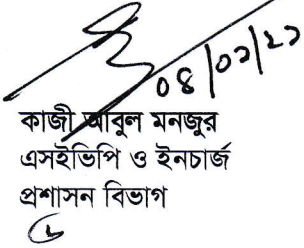 ০৪/০১/২১
কাজী আবুল মনজুর
এসইভিপি ও ইনচার্জ
প্রশাসন বিভাগ